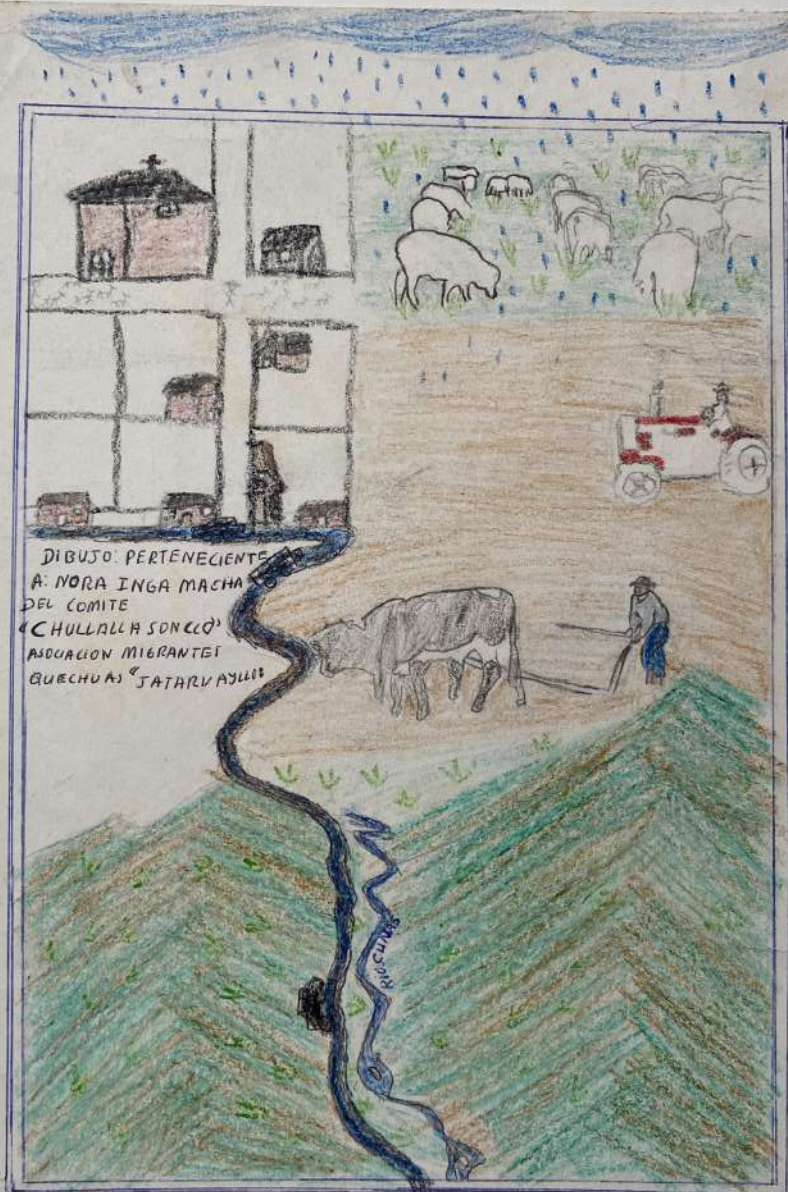 DIBUJO: PERTENECIENTE
A: NORA INGA MACHA
DEL COMITE
"CHULLALLA SONCCO"
ASOCIACION MIGRANTES
QUECHUAS "JATARY AYLLU"
RIO:CUNAS